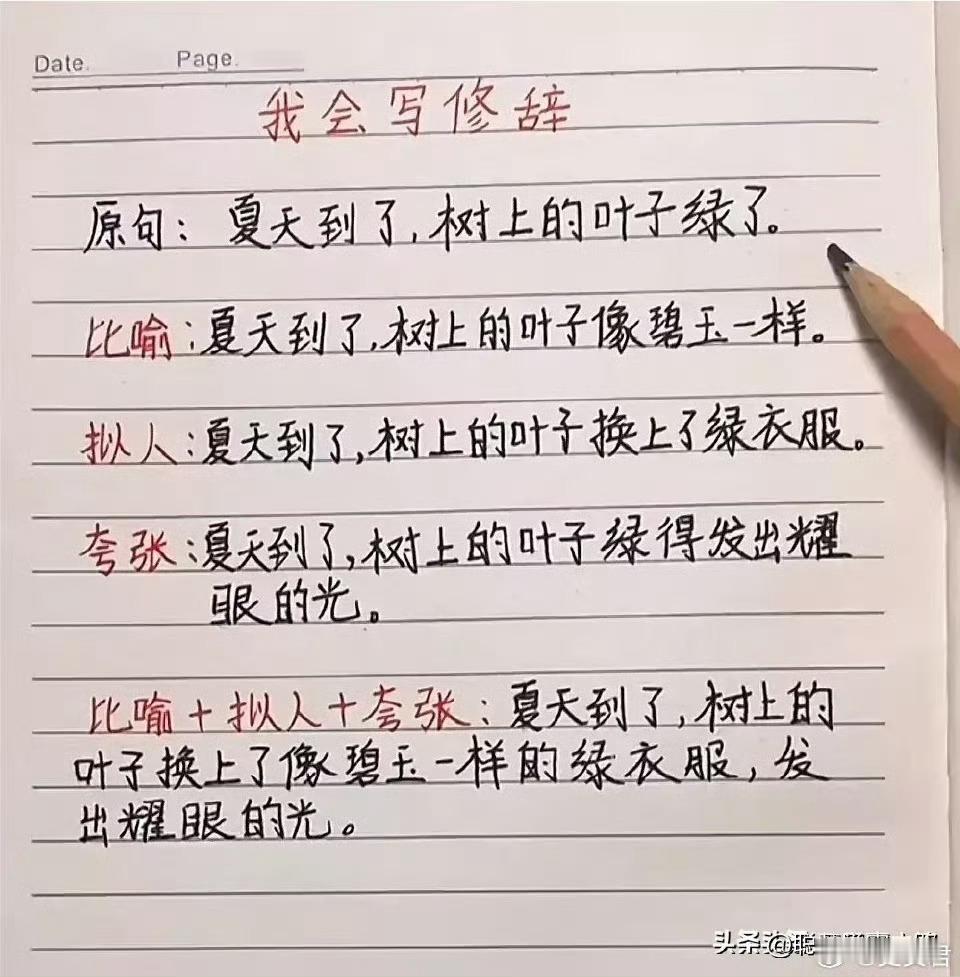 Date. Page.
我会写修辞
原句：夏天到了，树上的叶子绿了。
比喻：夏天到了，树上的叶子像碧玉一样。
拟人：夏天到了，树上的叶子换上了绿衣服。
夸张：夏天到了，树上的叶子绿得发出耀
眼的光。
比喻＋拟人＋夸张：夏天到了，树上的
叶子换上了像碧玉一样的绿衣服，发
出耀眼的光。
头条 @聪